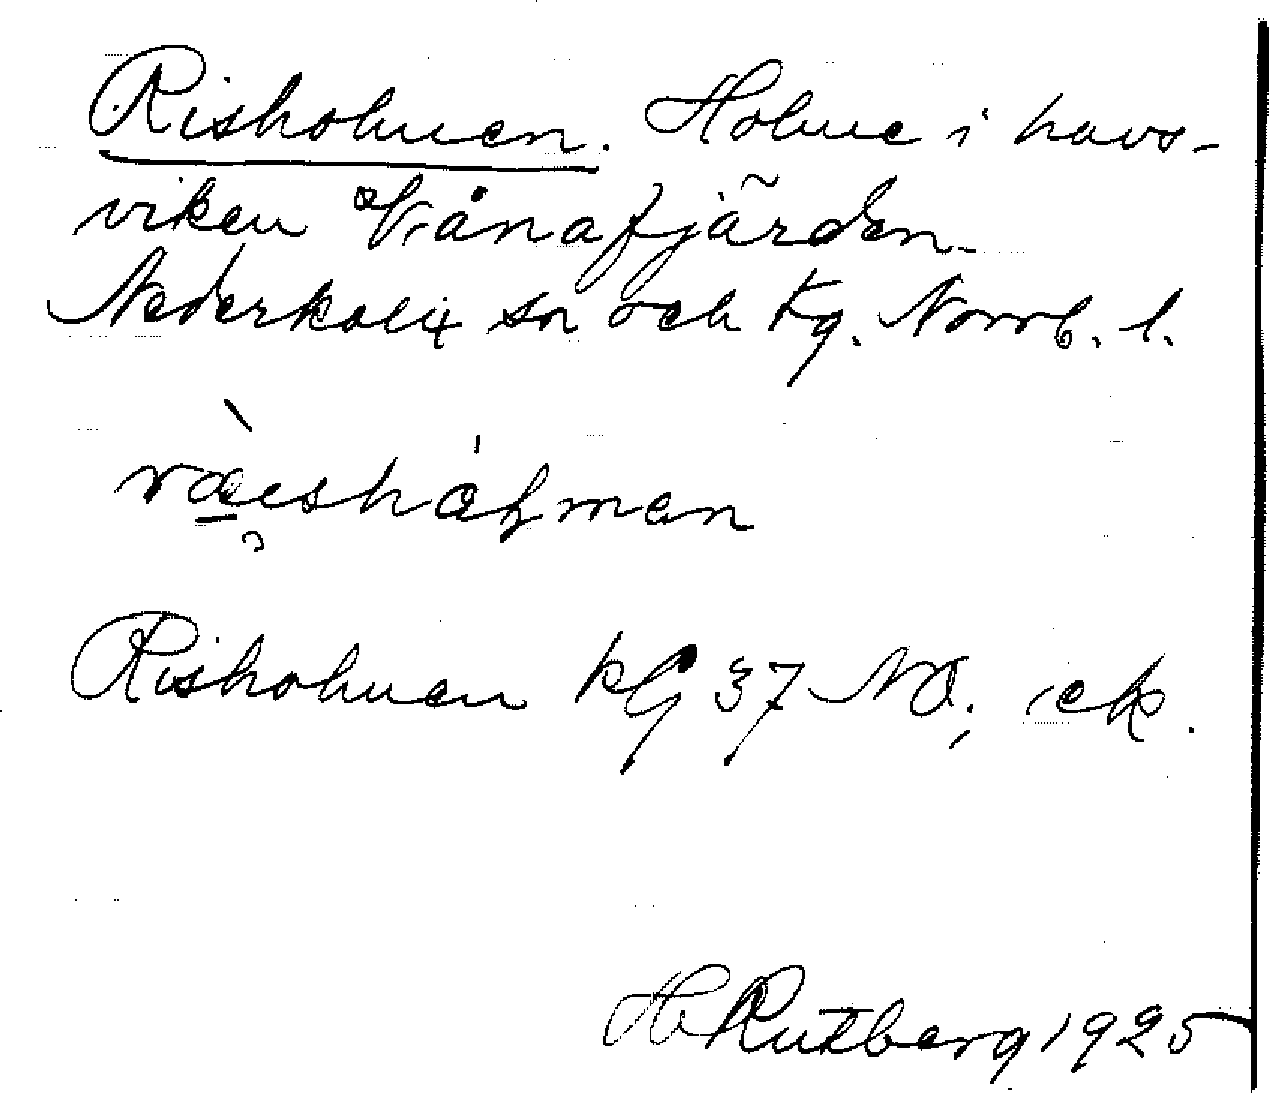 Risholmen. Holme i havs-
viken Vånafjärden
Nederkalix sn och tg. Norrb. l.
ræisholman
Risholmen kG 37 NO; ek.
H Rutberg 1925